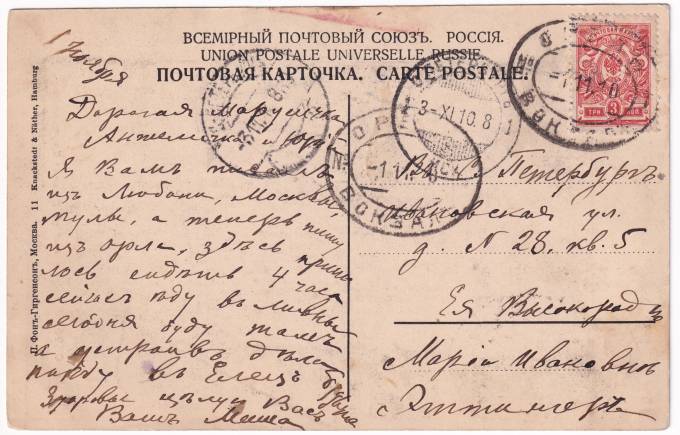 ВСЕМІРНЫЙ ПОЧТОВЫЙ СОЮЗЪ. РОССІЯ.
UNION POSTALE UNIVERSELLE RUSSIE
ПОЧТОВАЯ КАРТОЧКА. CARTE POSTALE.
1 Ноября
Дорогая Маруся
Анжелика и Юрій
Я Вамъ
изъ Любани, Москвы,
Тулы, а теперь пишу
изъ Орла, здѣсь пришл
лось сидѣть 4 часа
сейчасъ ѣду въ Ливны
сегодня буду тамъ
и устроивъ дѣла
поѣду въ Елецъ
Здоровье цѣлую Васъ
Вашъ Миша
С. Петербургъ
Ивановская ул.
д. N 28. кв. 5
Ея Высокородіе
Маріи Ивановнѣ
Эттингеръ
3-XI.10.8
ВОКЗАЛЪ
ВОКЗАЛЪ
ТРИ 3 КОП
Д. Фонъ-Гиргенсонъ, Москва. 11 Knackstedt & Näther, Hamburg